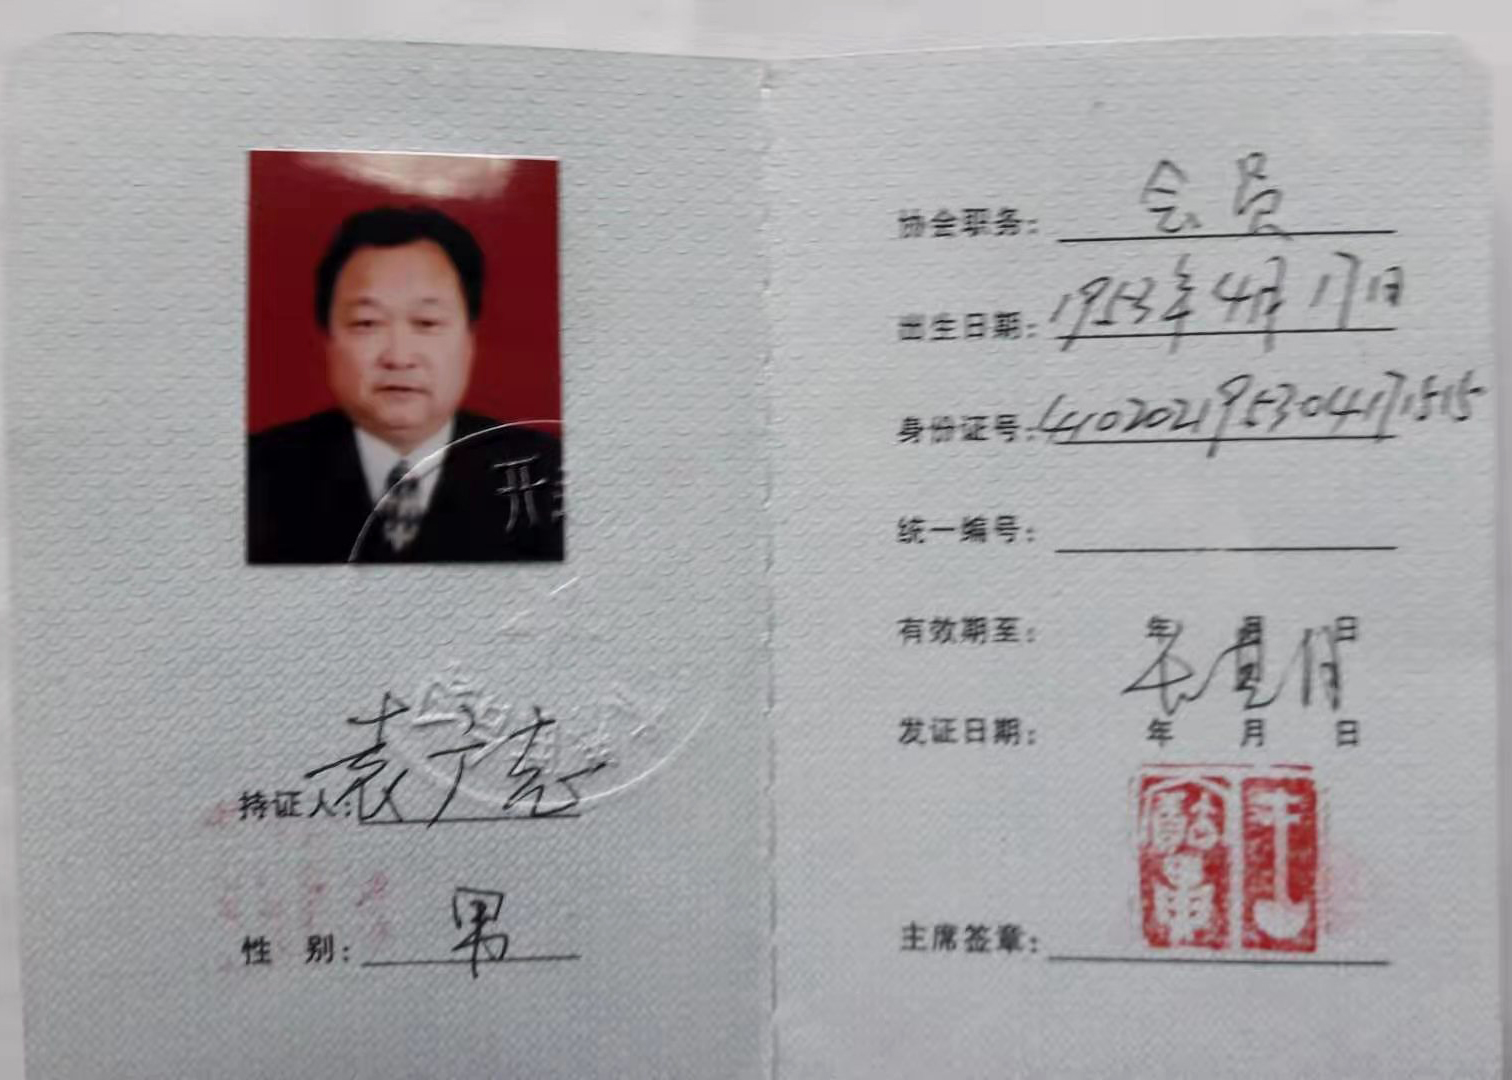 开
持证人：袁广志
性 别：男
协会职务：会员
出生日期：1953年4月17日
身份证号：410202195304171515
统一编号：
有效期至： 年 月 日
长具月
发证日期： 年 月 日
主席签章：